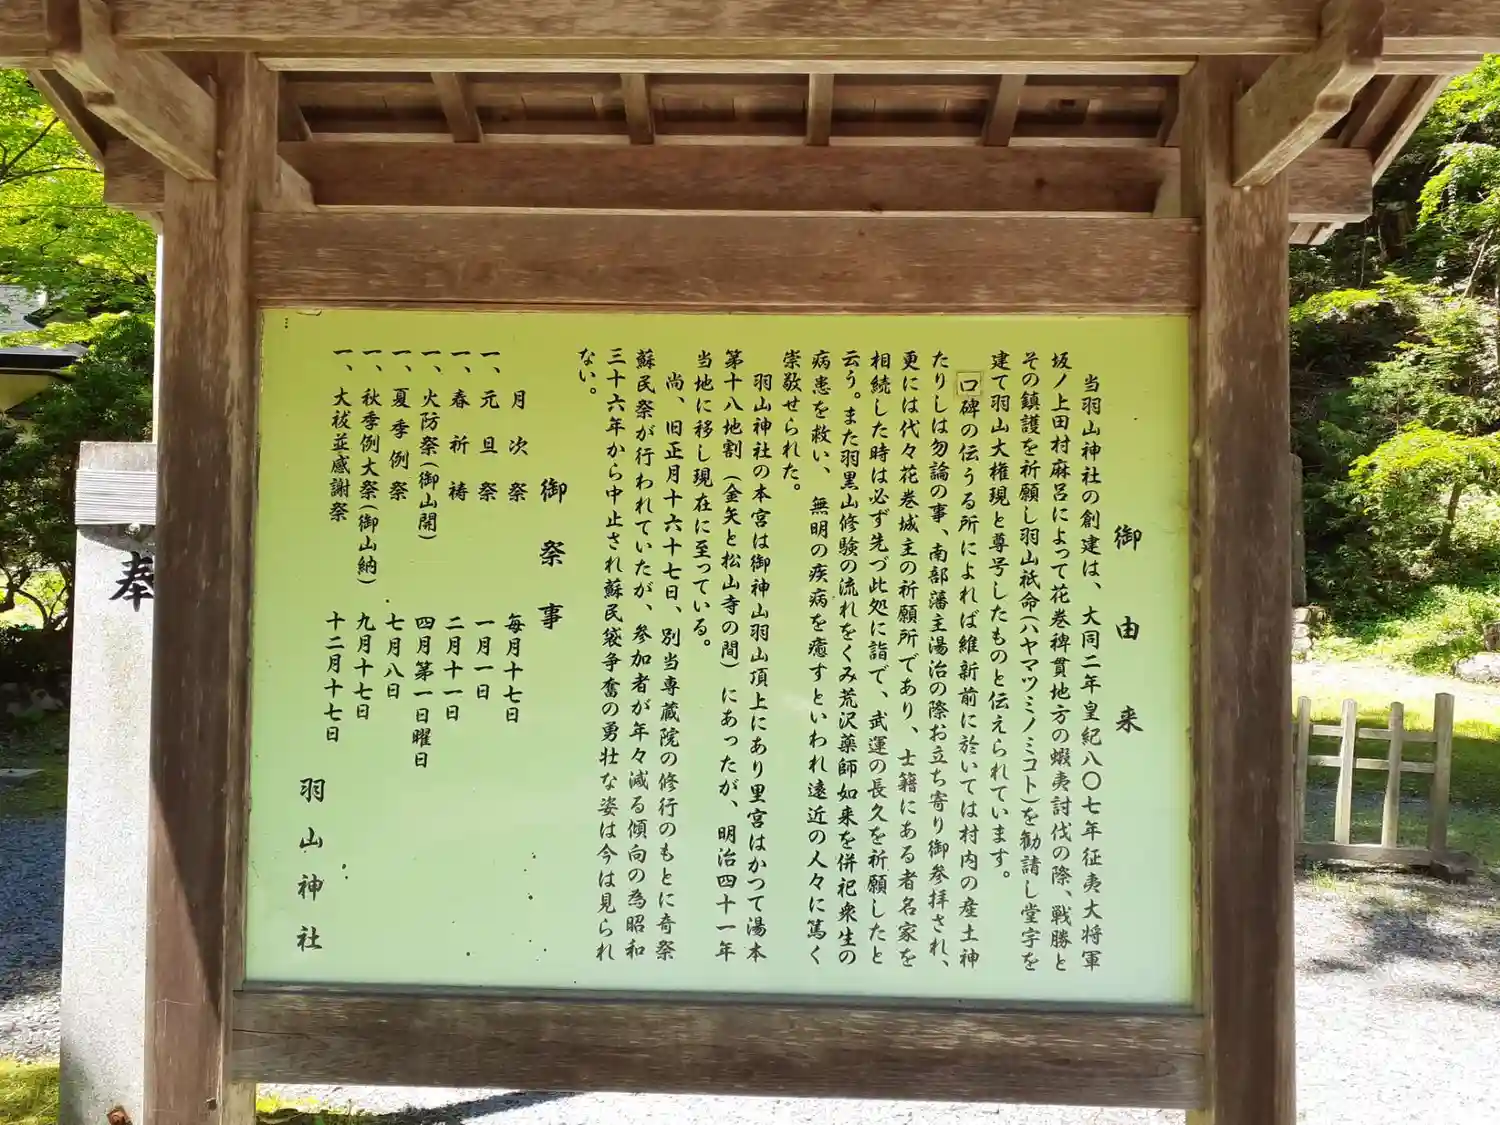 御由来
当羽山神社の創建は、大同二年皇紀八〇七年征夷大将軍
坂ノ上田村麻呂によって花巻稗貫地方の蝦夷討伐の際、戦勝と
その鎮護を祈願し羽山祇命(ハヤマツミノミコト)を勧請し堂宇を
建て羽山大権現と尊号したものと伝えられています。
口碑の伝うる所によれば維新前に於いては村内の産土神
たりしは勿論の事、南部藩主湯治の際お立ち寄り御参拝され、
更には代々花巻城主の祈願所であり、士籍にある者名家を
相続した時は必ず先づ此処に詣で、武運の長久を祈願したと
云う。また羽黒山修験の流れをくみ荒沢薬師如来を併祀衆生の
病患を救い、無明の疾病を癒すといわれ遠近の人々に篤く
崇敬せられた。
羽山神社の本宮は御神山羽山頂上にあり里宮はかつて湯本
第十八地割(金矢と松山寺の間)にあったが、明治四十一年
当地に移し現在に至っている。
尚、旧正月十六十七日、別当専蔵院の修行のもとに奇祭
蘇民祭が行われていたが、参加者が年々減る傾向の為昭和
三十六年から中止され蘇民袋争奮の勇壮な姿は今は見られ
ない。
御祭事
月次祭 毎月十七日
一、元旦祭 一月一日
一、春祈祷 二月十一日
一、火防祭(御山開) 四月第一日曜日
一、夏季例祭 七月八日
一、秋季例大祭(御山納) 九月十七日
一、大祓並感謝祭 十二月十七日
羽山神社
奉